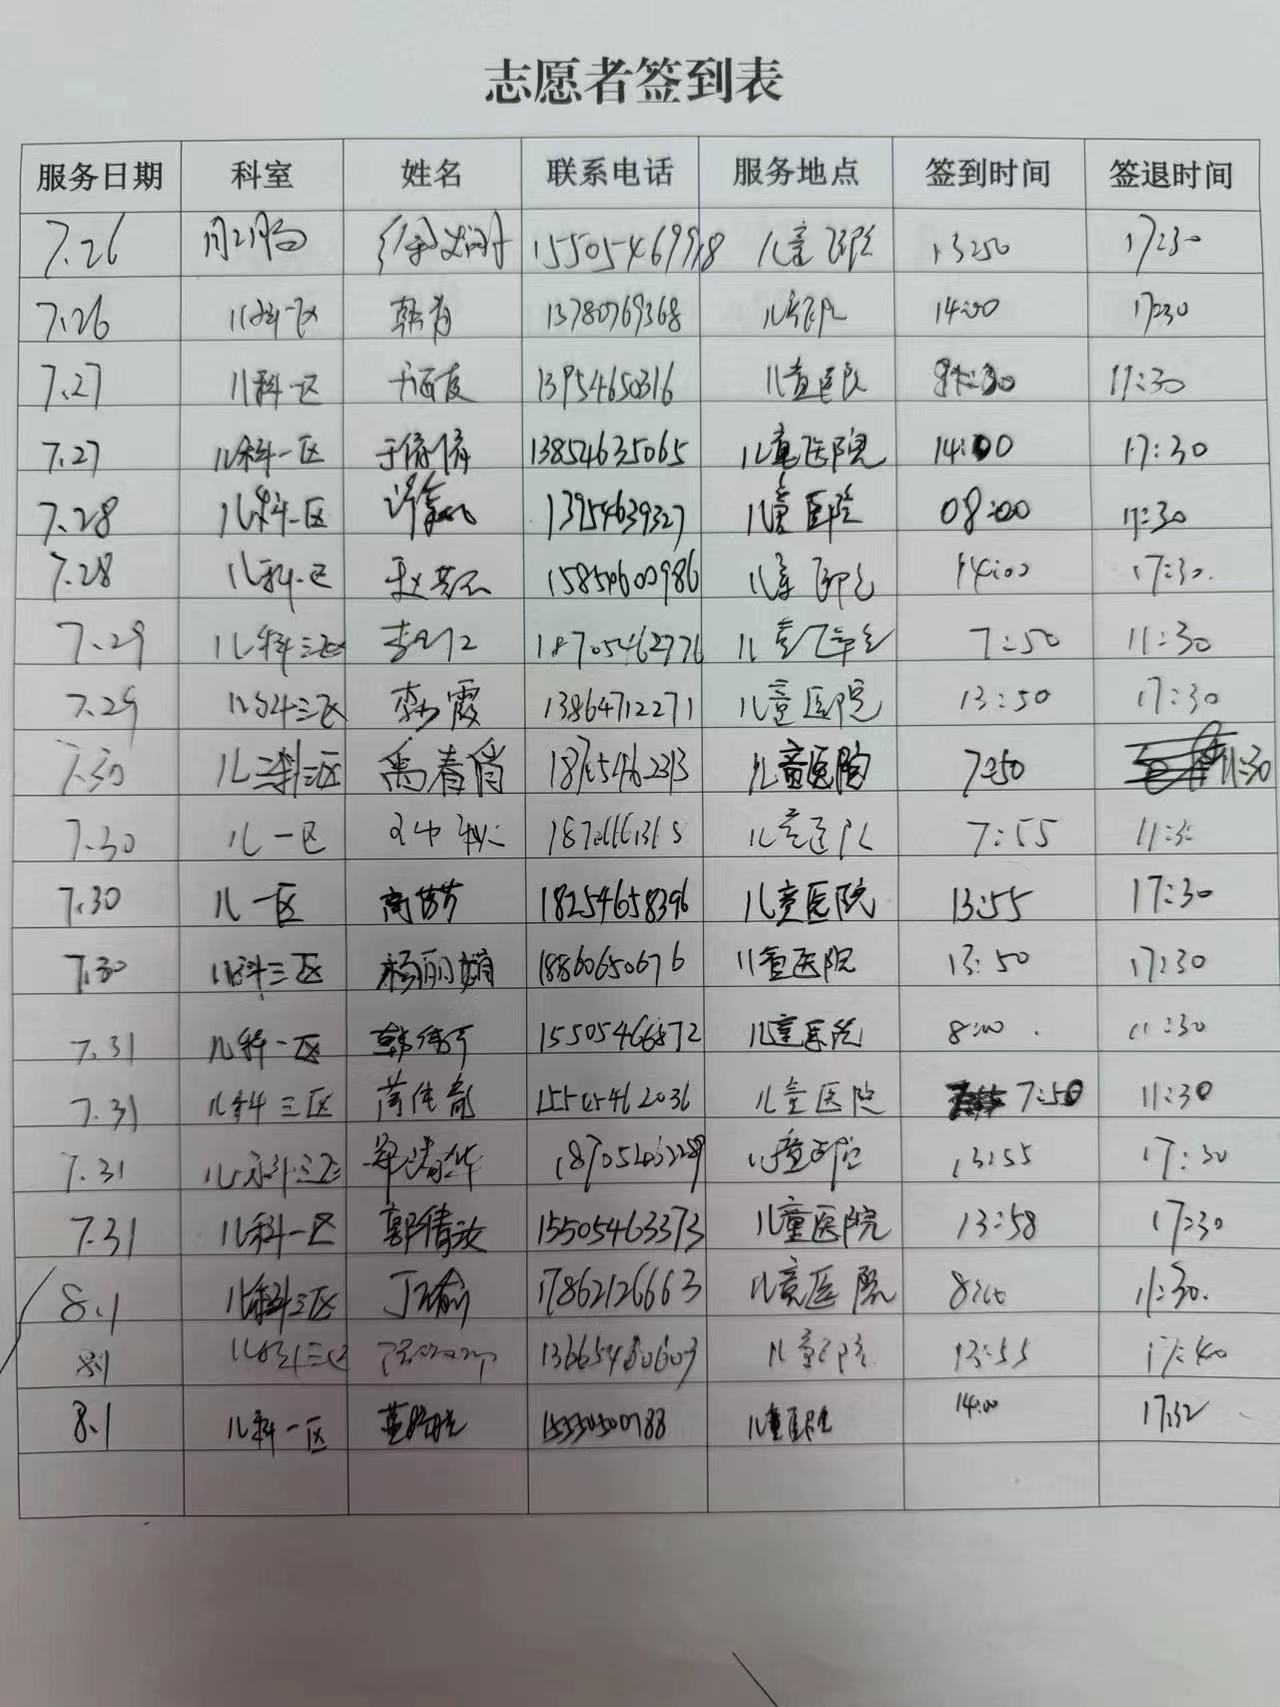 志愿者签到表
服务日期 科室 姓名 联系电话 服务地点 签到时间 签退时间
7.26 15505469998 儿童医院 13:50 17:30
7.26 儿科一区 13780769368 儿童医院 14:00 17:30
7.27 儿科一区 13954650316 儿童医院 11:30
7.27 儿科一区 于倩倩 13854635065 儿童医院 14:00 17:30
7.28 儿科一区 13954639327 儿童医院 08:00 11:30
7.28 儿科一区 儿童医院 14:00 17:30.
7.29 儿科三区 18705462776 儿童医院 7:50 11:30
7.29 儿科三区 霞 13864712271 儿童医院 13:50 17:30
7.30 儿科三区 禹春俏 18705462313 儿童医院 7:50 11:30
7.30 儿一区 儿童医院 7:55 11:30
7.30 儿一区 高 18254658396 儿童医院 13:55 17:30
7.30 儿科三区 杨丽娟 18860650676 儿童医院 13:50 17:30
7.31 儿科一区 韩 15505466872 儿童医院 8:00 11:30
7.31 儿科三区 15505462036 儿童医院 7:50 11:30
7.31 儿科三区 郑 华 儿童医院 13:55 17:30
7.31 儿科一区 郭倩汝 15505463373 儿童医院 13:58 17:30
8.1 儿科三区 丁瑜 17862126663 儿童医院 8:00 11:30.
8.1 儿科三区 儿童医院 13:55 17:40
8.1 儿科一区 15550500788 儿童医院 14:00 17:32